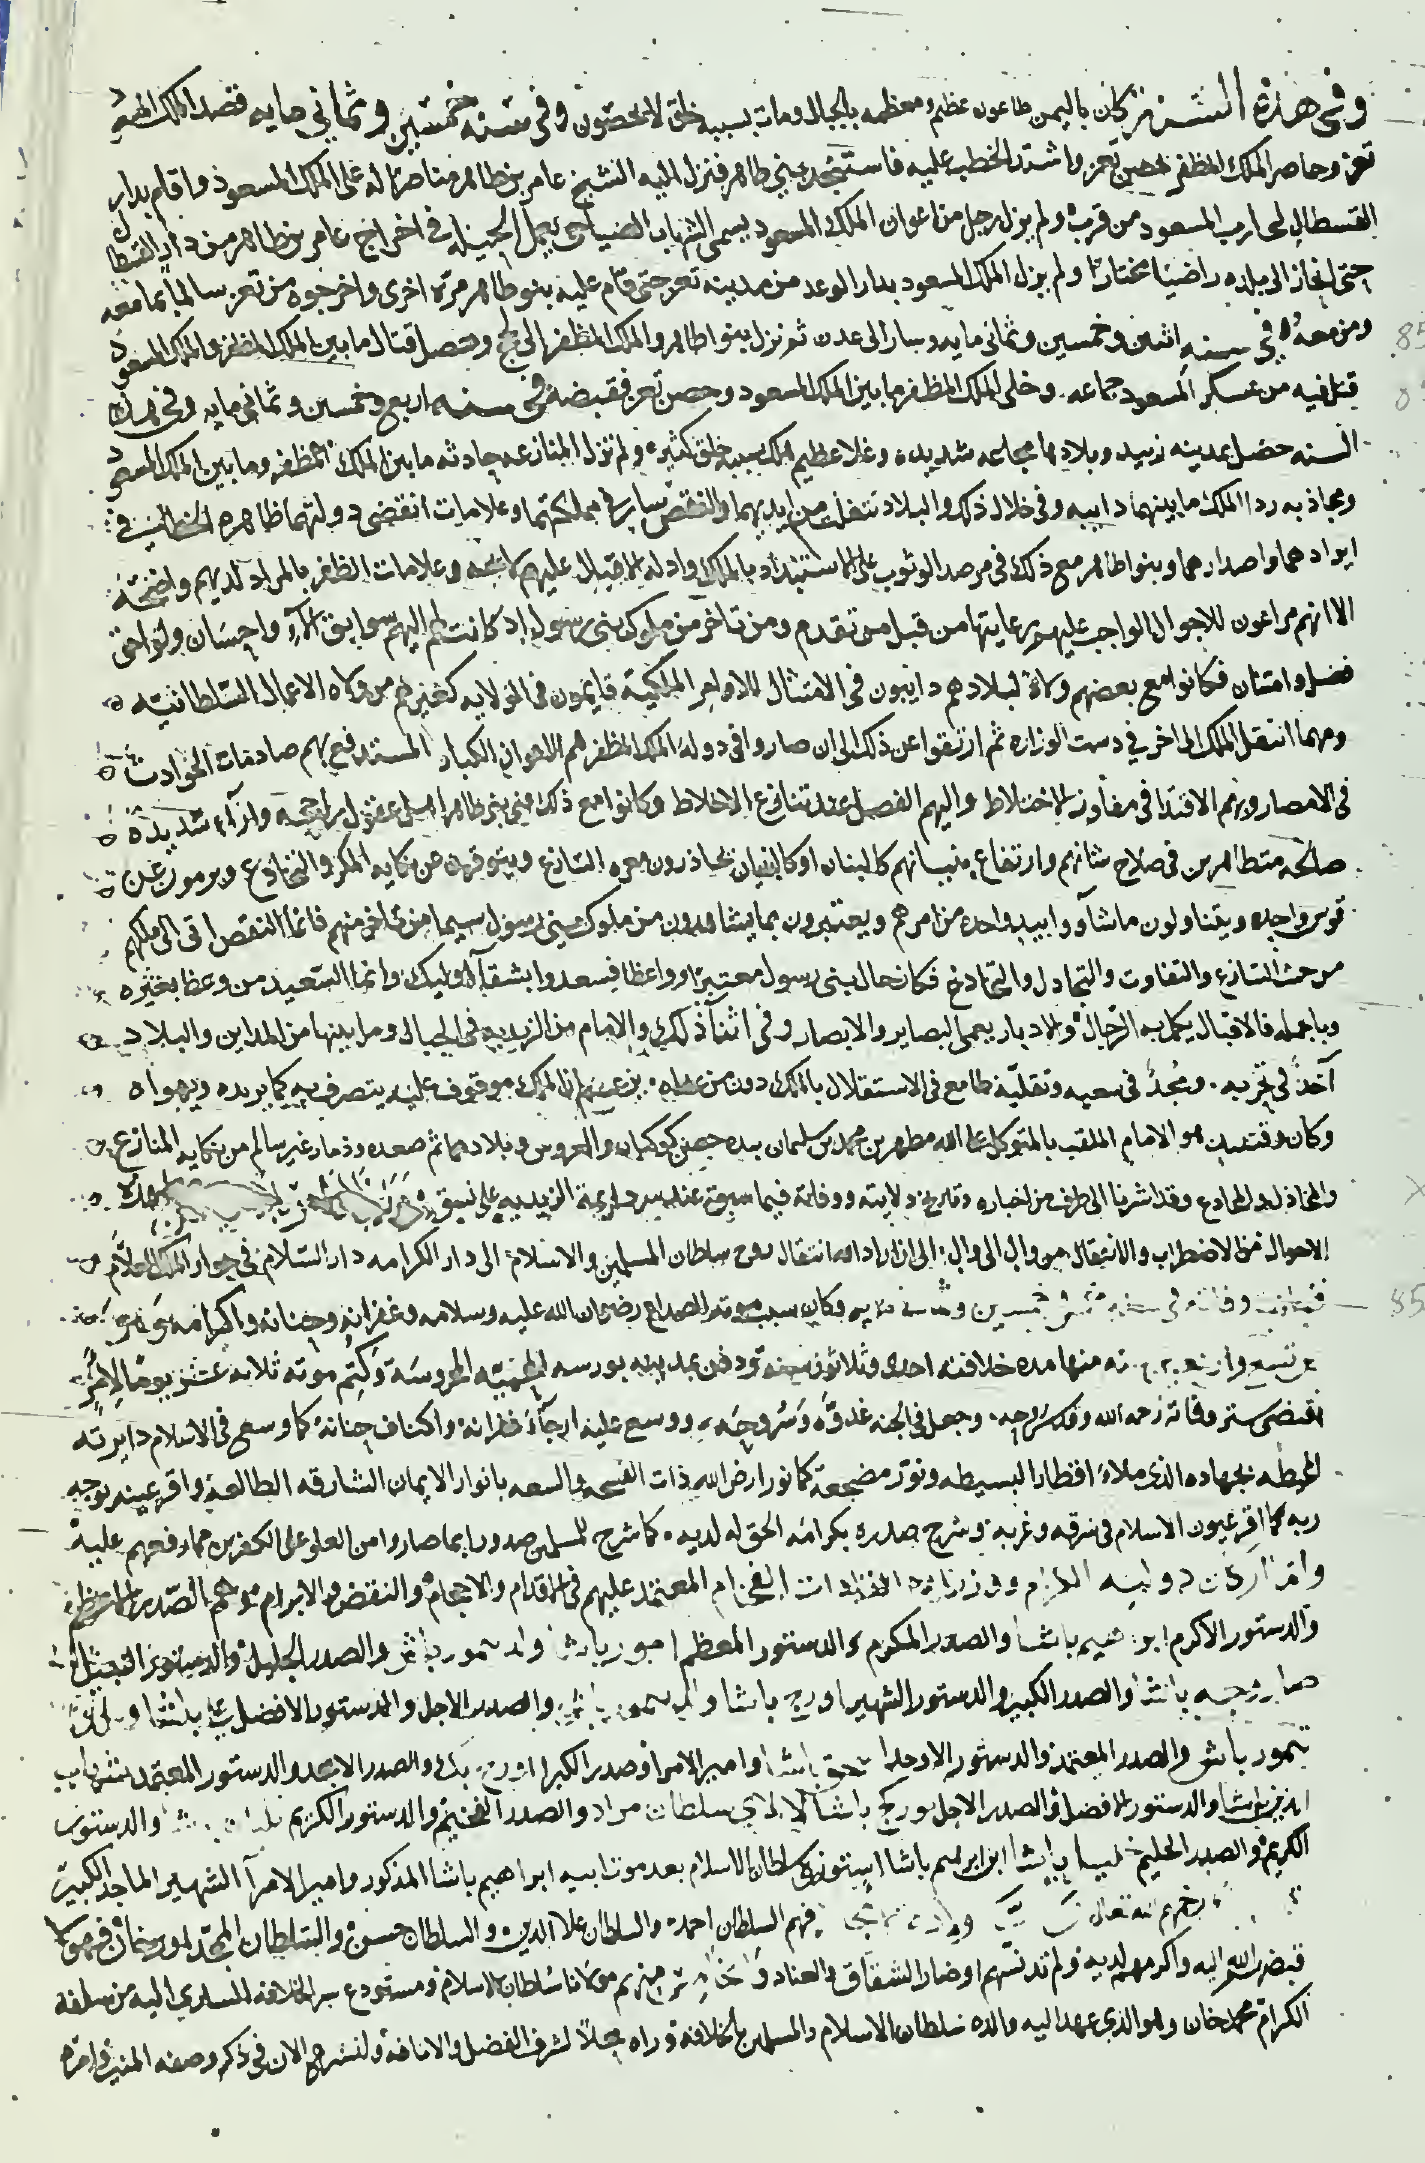 وفي هذه السنة كان باليمن طاعون عظيم ومعظمه بالجبال ومات بسببه خلق لا يحصون وفي سنه خمسين وثماني مايه قصد الملك
تعز وحاصر الملك المظفر بحصن تعز واشتد الخطب عليه فاستنجد ببني طاهر فنزل اليه الشيخ عامر بن طاهر مناصرا له على الملك المسعود واقام بدار
القسطال يحارب المسعود من قرب ولم يزل رجل من اعوان الملك المسعود يسمى الشهاب الضياحي يعمل الحيلة في اخراج عامر بن طاهر من دار القسطال
حتى انحاز الى بلده راضيا مختارا ولم يزل الملك المسعود بدار الوعد من مدينه تعز حتى قام عليه بنو طاهر مرة اخرى واخرجوه من تعز سالما بما معه
ومن معه في سنه اثنين وخمسين وثماني مايه وسار الى عدن ثم نزل بنوا طاهر والملك المظفر الى لحج وحصل قتال ما بين الملك المظفر والملك المسعود
قتل فيه من عسكر المسعود جماعه وخلى الملك المظفر ما بين الملك المسعود وحصن تعز فقبضه في سنه اربع وخمسين وثماني مايه وفي هذه
السنه حصل بمدينه زبيد وبلادها مجاعه شديده وغلا عظيم هلك بسببه خلق كثير ولم تزل المنازعه حادثه ما بين الملك المظفر وما بين الملك المسعود
ومجاذبه ردا الملك ما بينهما دايبه وفي خلال ذلك والبلاد تتفلت من ايديهما والنقص سار في مملكتهما وعلامات انقضى دولتهما ظاهره في
ايرادهما واصدارهما وبنوا طاهر مع ذلك في مرصد الوثوب على الاستبداد بالملك وادلة الاقبال عليهم لايحه وعلامات الظفر بالمراد لديهم واضحة
الا انهم مراعون للاحوال الواجب عليهم رعايتها من قبل من تقدم ومن تاخر من ملوك بني رسول اذ كانت لهم اليهم سوابق الآء واحسان ولواحق
فضل وامتنان فكانوا مع بعضهم ولاة لبلادهم دايبون في الامتثال للاوامر الملكية قايمون في الولايه كغيرهم من ولاه الاعمال السلطانيه
ومهما انتقل الملك الى اخر في دست الوزاره ثم ارتقوا عن ذلك الى ان صاروا في دولة الملك المظفر هم الاعوان الكبار المستدفع بهم صادمات الحوادث
في الامصار وبهم الاقتدا في مفاوز الاختلاط واليهم الفصل عند تنازع الاخلاط وكانوا مع ذلك اعني بني طاهر اهل عقول راجحه وارآء شديدة
صالحه متظاهرين في صلاح شانهم وارتفاع بنيانهم كالبنان او كالبنيان يحاذرون معره التنازع ويتوقون من مكايد المكر والتخادع ويرمون عن
قوس واحده ويتناولون ما شآو وابيد واحده من امرهم ويعتبرون بما يشاهدون من ملوك بني رسول سيما من تاخر منهم فانما النقص اتى الى ملكهم
من حيث التنازع والتفاوت والتجادل والتخادع فكان حال بني رسول معتبرا وواعظا فسعدوا بشقآء اوليك وانما السعيد من وعظ بغيره
وبالجمله فالاقبال يكمل به الرجال والادبار يعمى البصاير والابصار وفي اثنآء ذلك والامام من الزيديه في الجبال وما بينها من المداين والبلاد
آخذ في تحزبه ومجد في سعيه وتقلبه طامع في الاستقلال بالملك دون من عداه يزعم ان الملك موقوف عليه يتصرف فيه كما يريده ويهواه
وكان وقتيذ هو الامام الملقب بالمتوكل على الله مطهر بن محمد بن سليمان بيده حصن كوكبان والعروس وبلادهما ثم صعده وذمار غير سالم من مكايد المنازع
والمخاذل والمخادع وقد اشرنا الى طرف من اخباره وتاريخ ولايته ووفاته فيما سبق عند سرد ايمة الزيديه على نسق
الاحوال من الاضطراب والانتقال من وال الى وال الى ان اراد الله انتقال روح سلطان المسلمين والاسلام الى دار الكرامه دار السلام في جوار الملك العلام
وفاته في سنه خمس وخمسين وثماني مايه وكان سبب موته الصداع رضوان الله عليه وسلامه وغفرانه وحنانه واكرامه
عن تسع واربعين منها مده خلافته احدى وثلاثون سنه ودفن بمدينه بورسه المحميه المحروسة وكتم موته ثلاثه عشر يوما لامر
اقتضى ستر وفاته رحمه الله وقدس روحه وجعل في الجنه غدوه وروحه ووسع عليه ارجآء غفرانه واكناف جنانه كما وسع في الاسلام دايرته
المحيطه بجهاده الذي ملاء اقطار البسيطه ونور مضجعه كما نور ارض الله ذات الفسحه والسعه بانوار الايمان الشارقه الطالعة واقر عينه بوجه
ربه كما اقر عيون الاسلام في شرقه وغربه وشرح صدره بكرامة الحق له لديه كما شرح للمسلمين صدورا بما صاروا من العلو على الكفر بن ورفعهم عليه
واما اركان دولته العظام ووزرائه الفخام المعتمد عليهم في الاقدام والاحجام والنقض والابرام فهم الصدر الاعظم
والدستور الاكرم ابراهيم باشا والصدر المكرم والدستور المعظم امور باشا ولد تمور باش والصدر الجليل والدستور
باشا والصدر الكبير والدستور الشهير اورج باشا ولد تمور باش والصدر الاجل والدستور الافضل علي باشا ولد
تمور باش والصدر المعتمد والدستور الاوحد اسحق باشا وامير الامرا وصدر الكبرا اورج بك والصدر الامجد والدستور المعتمد شهاب
الدين باشا والدستور الافضل والصدر الاجل بورج باشا سلطان مراد والصدر الفخيم والدستور الكريم باشا والدستور
الكريم والصدر الحليم خليل باشا ابن ابراهيم باشا استوزره سلطان الاسلام بعد موت ابيه ابراهيم باشا المذكور وامير الامرآ الشهير الماجد الكبير
فهم السلطان احمد والسلطان علا الدين والسلطان حسن والسلطان
قبضه الله اليه واكرمهم لديه ولم تدنسهم اوضار الشقاق والعناد منهم مولانا سلطان الاسلام ومستودع سر الخلافه الساري اليه من سلفه
الكرام محمد خان وهو الذي عهد اليه والده سلطان الاسلام والمسلمين بالخلافه وراه محلا لشرف الفضل والانافه ولنشرع الان في ذكر وصفه المنيف وامره